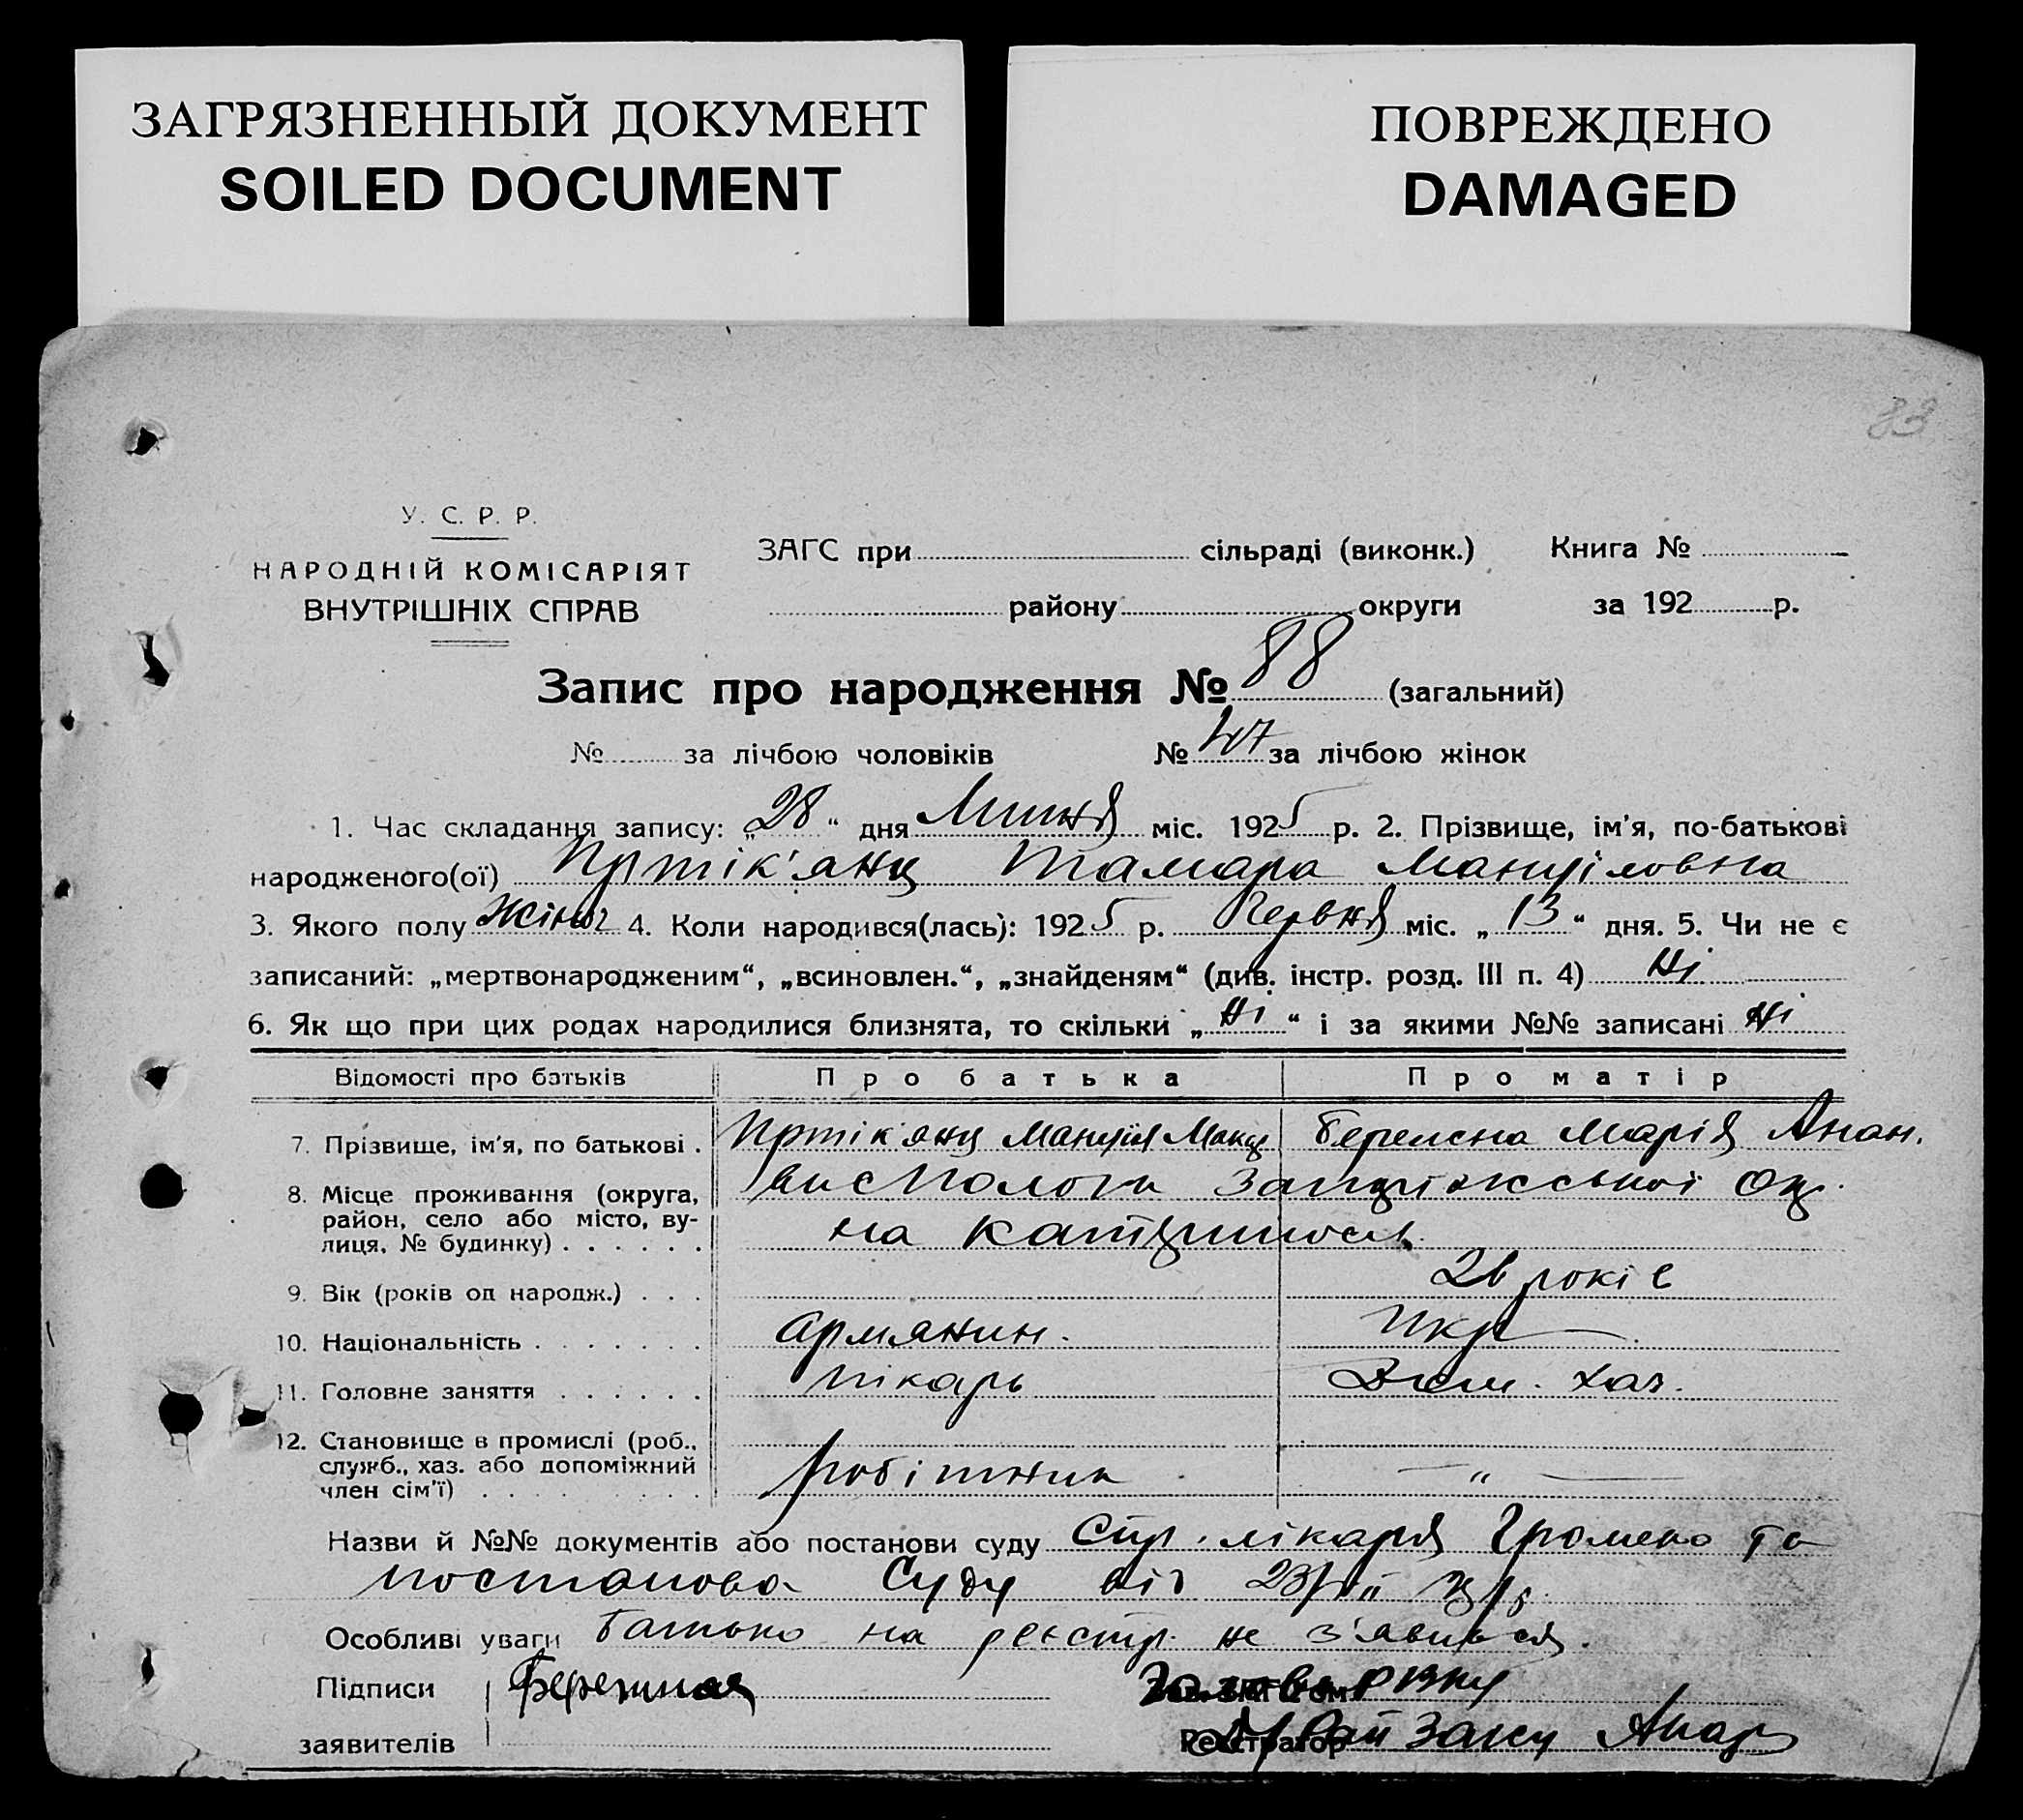 ЗАГРЯЗНЕННЫЙ ДОКУМЕНТ
SOILED DOCUMENT
ПОВРЕЖДЕНО
DAMAGED
83
У. С. Р. Р.
НАРОДНІЙ КОМІСАРІЯТ
ВНУТРІШНІХ СПРАВ
ЗАГС при сільраді (виконк.) Книга №
району округи за 192 р.
Запис про народження № 88 (загальний)
№ за лічбою чоловіків № 47 за лічбою жінок
1. Час складання запису: „28“ дня Липня міс. 1925 р. 2. Прізвище, ім'я, по-батькові
народженого(ої) Тамара Мануіловна
3. Якого полу жіноч 4. Коли народився(лась): 1925 р. Червня міс. „13“ дня. 5. Чи не є
записаний: „мертвонародженим“, „всиновлен.“, „знайденям“ (див. інстр. розд. III п. 4) Ні
6. Як що при цих родах народилися близнята, то скільки „Ні“ і за якими №№ записані Ні
Відомості про батьків Про батька Про матір
7. Прізвище, ім'я, по батькові . Мануїл Марія Анан.
8. Місце проживання (округа,
район, село або місто, вулиця, № будинку) . . . . . . Запоріжської Ок.
на
9. Вік (років од народж.) . . . 26 років
10. Національність . . . . . . . армянин. Укр
11. Головне заняття . . . . . . пікарь Дом. хаз.
12. Становище в промислі (роб.,
служб., хаз. або допоміжний
член сім'ї) . . . . . . . . . робітник — " —
Назви й №№ документів або постанови суду лікаря та
постанова Суду від
Особливі уваги Батько на реєстр. не з'явився.
Підписи Бережная
заявителів Реєстратор